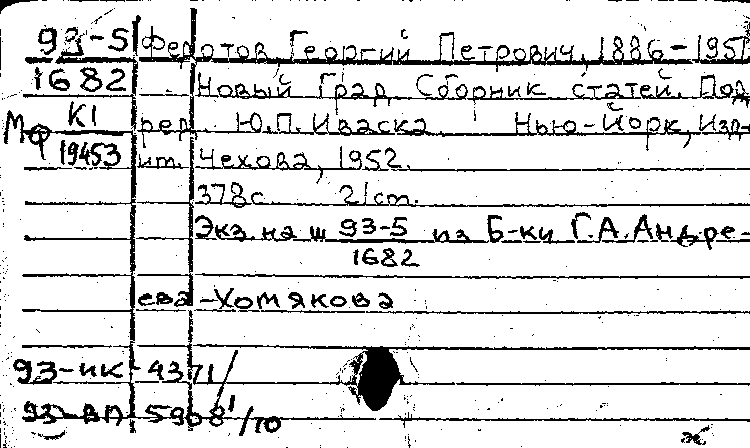 93-5 Федотов, Георгий Петрович, 1886-1951
1682 Новый Град. Сборник статей. Под
МФ К1 ред. Ю.П. Иваска. Нью-Йорк, Изд-
19453 им. Чехова, 1952.
378с. 21см.
Экз. на ш 93-5 из Б-ки Г.А. Андре-
1682
ева-Хомякова
93-ик-4371/
93-ВП-5908'/10